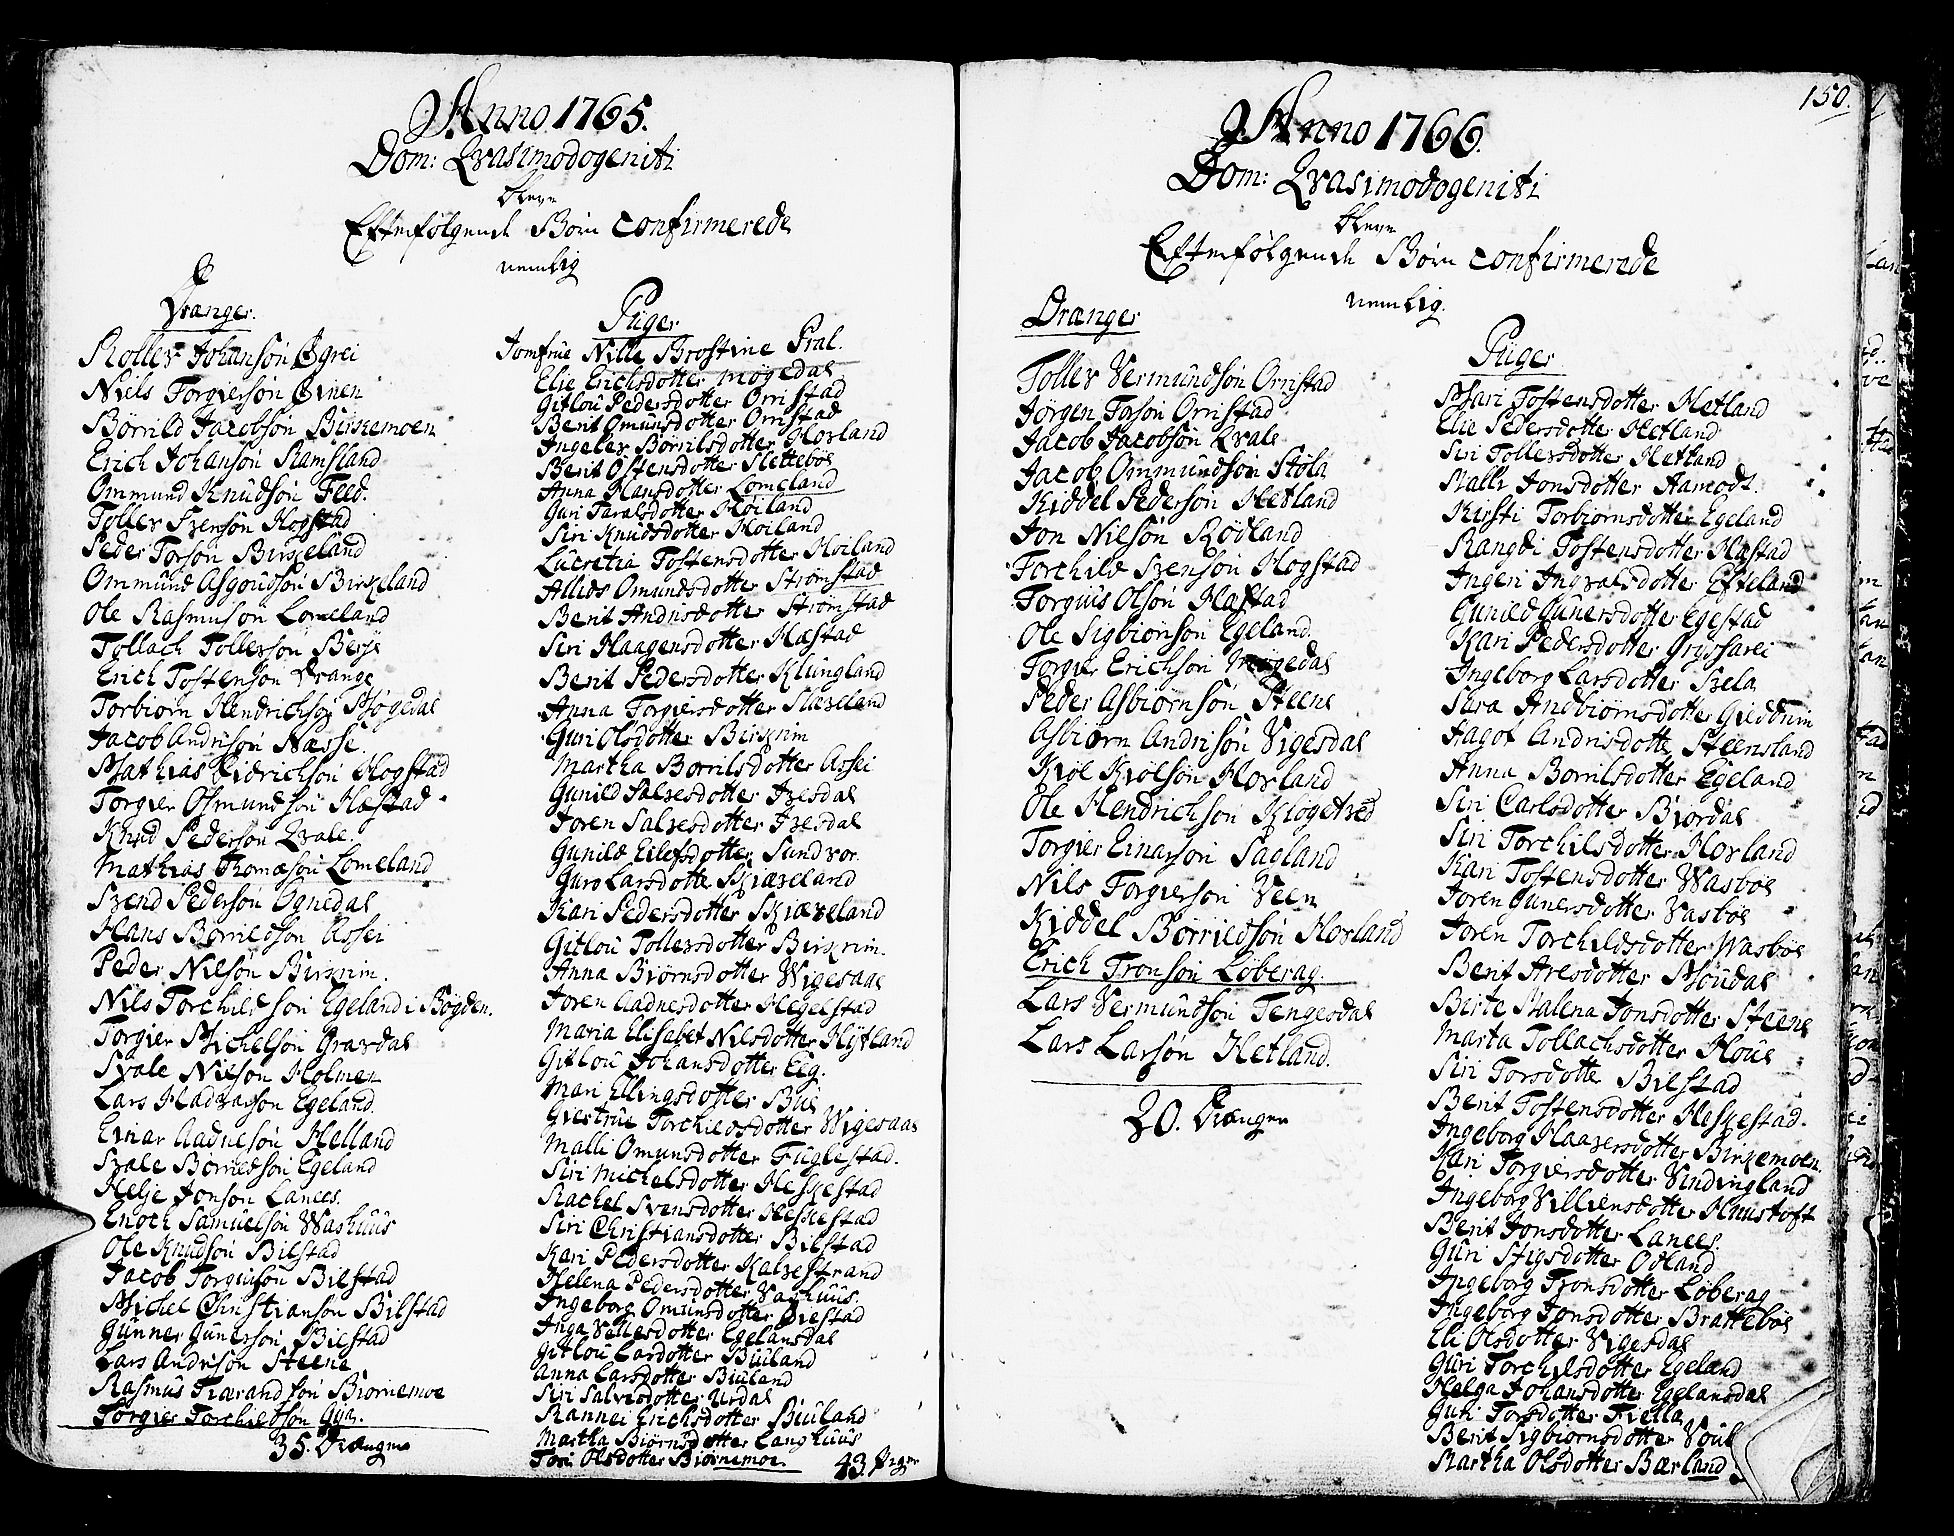 Anno 1765.
Dom: Qvasimodogeniti
bleve
Efterfølgende Børn confirmerede
nemlig
Drænger.
Rollev Johansøn Øgrei
Niels Torgiersøn Øinen
Børrild Jacobsøn Birkemoen
Erich Johansøn Ramsland
Ommund Knudsøn Feed.
Tollev Svensøn Hogstad
Peder Torsøn Birkeland
Ommund Asgoudsøn Birkeland
Ole Rasmusøn Lomeland
Tollach Tollevsøn Berje
Erich Tostensøn Drange
Torbiørn Hendrichsøn Møgedal
Jacob Andrisøn Næsse.
Mathias Didrichsøn Hogstad
Torgier Osmundsøn Hæstad
Knud Pedersøn Qvale.
Mathias Thomæsøn Lomeland
Svend Pedersøn Ognedal
Hans Børrildsøn Assei
Peder Nilsøn Birkrim.
Nils Torchildsøn Egeland i Bøgden.
Torgier Michelsøn Gravdal
Svale Nilsøn Holmen
Lars Hadvarsøn Egeland.
Einar Aadnesøn Helland
Svale Børrildsøn Egeland
Helje Jonsøn Lanees.
Enoch Samuelsøn Washuus
Ole Knudsøn Bilstad
Jacob Torgiusøn Bilstad
Michel Christiansøn Bilstad
Gunner Gunersøn Bilstad
Lars Andrisøn Steene
Rasmus Tiærandsøn Biørnemoe
Torgier Torchildsøn Gya.
35. Drænger
Piiger
Jomfrue Nille Brostine Pral.
Elje Erichsdotter Møgedal
Gitlou Pedersdotter Orristad
Berit Omunsdotter Orristad
Ingelev Børrilsdotter Hovland
Berit Ostensdotter Slettebøe
Anna Hansdotter Lomeland
Guri Taralsdotter Høiland
Siri Knudsdotter Høiland
Lucretia Tostensdotter Høiland
Allids Omundsdotter Strømstad
Berit Andrisdotter Strømstad
Siri Haagensdotter Hæstad
Berit Pedersdotter Klungland
Anna Torgiersdotter Skæveland
Guri Olsdotter Birkrim
Martha Børrilsdotter Assei
Gunild Salvesdotter Ivesdal
Joren Salvesdotter Ivesdal
Gunild Eilefsdotter Sundvor.
Guro Larsdotte Skiæveland
Kari Pedersdotter Skiæveland
Gitlou Tollevsdotter Birkrim.
Anna Biørnsdotter Wigesaae
Joren Aadnesdotter Hegelstad
Maria Elisabet Nilsdotter Hytland
Gitlou Johansdotter Eeg.
Mari Ellingsdotter Bue
Giertrue Torchildsdotter Wigesaae
Malli Omunsdotter Fuglestad.
Siri Michelsdotter Heskestad
Rachel Svensdotter Heskestad
Siri Christiansdotter Bilstad
Kari Pedersdotter Kalvestrand
Helena Pedersdotter Vashuus.
Ingeborg Omunsdotter Bilstad
Inga Vellesdotter Egelansdal
Gitlou Larsdotter Biuland
Anna Larsdotter Biuland
Siri Salvesdotter Urdal
Rannei Erichsdotter Biuland
Martha Biørnsdotter Langhuus
Tori Olsdotter Biørnemoe.
43. Piiger
150.
Anno 1766.
Dom: Qvasimodogeniti
bleve
Efterfølgende Børn confirmerede
nemlig.
Drænger
Tollev Vermundsøn Orristad
Jørgen Torsøn Orristad
Jacob Jacobsøn Qvale
Jacob Ommundsøn Støla
Kiddel Pedersøn Hetland
Jon Nilsøn Rødland
Torchild Svensøn Hogstad
Torgius Olsøn Hæstad
Ole Sigbiørnsøn Egeland.
Torgier Erichsøn Møgedal
Peder Asbiørnsøn Steene
Asbiørn Andrisøn Vigesdal
Kiøl Kiølsøn Hovland
Ole Hendrichsøn Kløgetved
Torgier Einarsøn Sagland
Nils Torgiersøn Veen
Kiddel Børrildsøn Hovland
Erich Tronsøn Løberag.
Lars Vermundsøn Tengesdal
Lars Larsøn Hetland.
20. Drænger
Piiger
Mari Tostensdotter Hetland
Elie Pedersdotter Hetland
Siri Tollevsdotter Hetland
Malli Jonsdotter Aamodt.
Kirsti Torbiørnsdotter Egeland
Rangdi Tostensdotter Hæstad
Ingeri Ingvalsdotter Efteland
Gunild Gunersdotter Egestad
Kari Pedersdotter Gryssarei
Ingeborg Larsdotter Svela
Sara Andbiørnsdotter Gieddrim
Aagot Andrisdotte Steensland
Anna Børrilsdotter Egeland
Siri Carlsdotter Biørdal
Siri Torchilsdotter Hovland
Kari Tostensdotter Wasbøe
Joren Gunersdotter Vasbøe
Joren Torchildsdotter Wasbøe
Berit Aresdotter Moudal
Berte Malena Jonsdotter Steene
Marta Tollachsdotter Houe
Siri Torsdotte Bilstad
Berit Tostensdotter Heskestad.
Ingeborg Haaversdotter Birkemoen
Kari Torgiersdotter Vindingland
Ingeborg Villiensdotter Huustoft
Berit Jonsdotter Lanees.
Guri Stigsdotter Odland
Ingeborg Tronsdotter Løberag
Ingeborg Jonsdotter Brattebøe
Eli Olsdotter Vigesdal
Guri Torchilsdotter Egeland
Helga Johansdotter Egelansdal
Guri Torsdotter Fiella
Berit Sigbiørnsdotter Voul
Martha Olsdotter Bærland